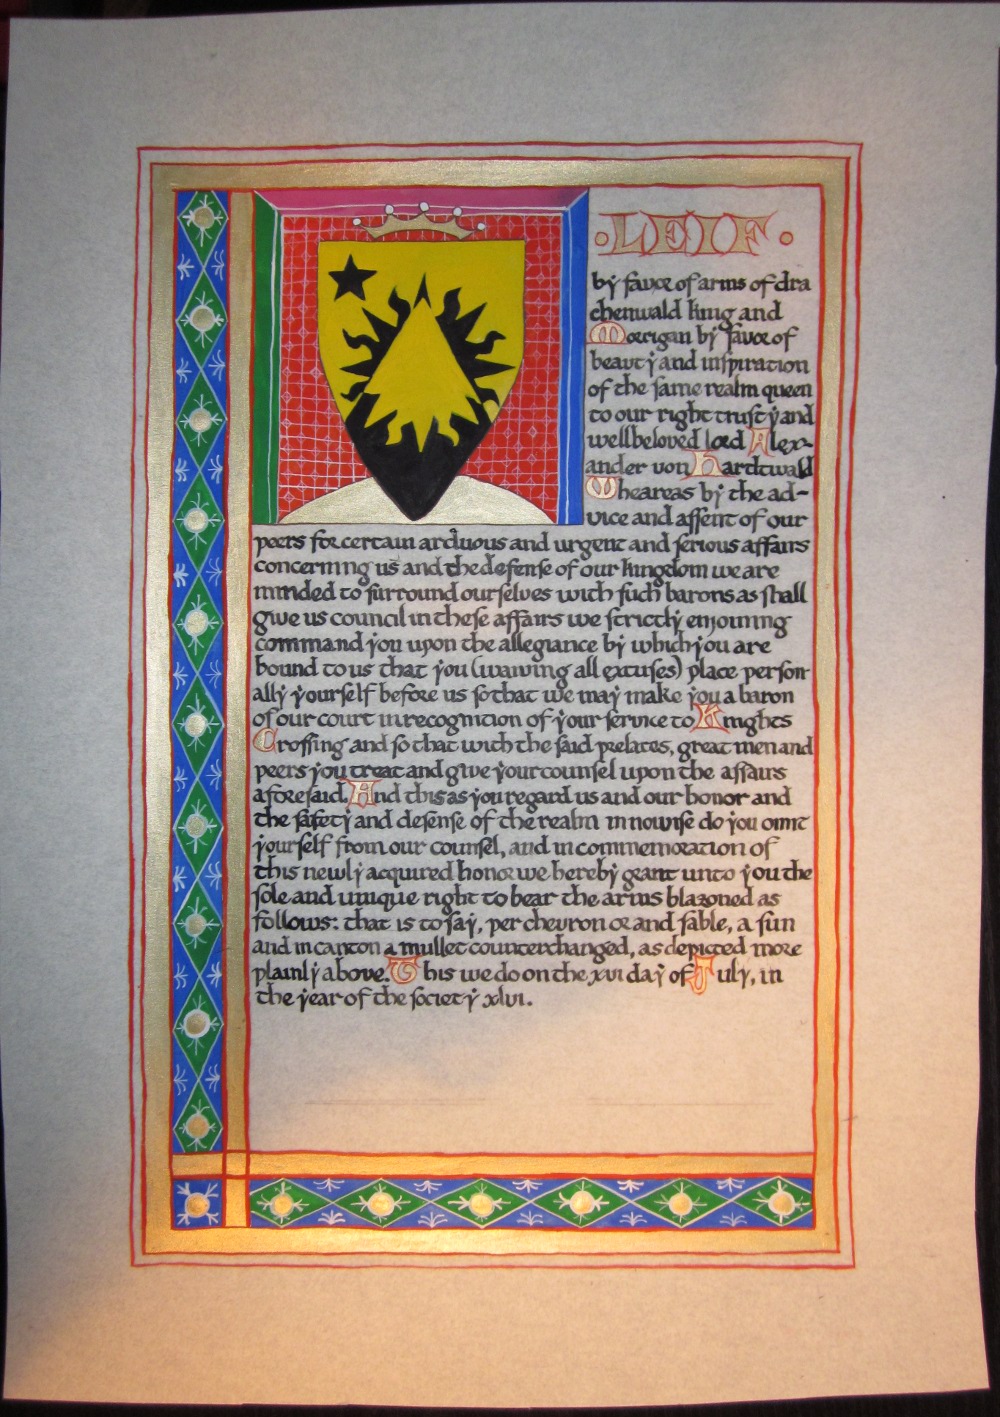 LEIF
by favor of arms of dra
chenwald king and
Morrigan by favor of
beauty and inspiration
of the same realm queen
to our right trusty and
wellbeloved lord Alex-
ander von Hardtwald
Wheareas by the ad-
vice and assent of our
peers for certain arduous and urgent and serious affairs
concerning us and the defense of our kingdom we are
minded to surround ourselves with such barons as shall
give us council in these affairs we strictly enjoining
command you upon the allegiance by which you are
bound to us that you (waiving all excuses) place person
ally yourself before us so that we may make you a baron
of our court in recognition of your service to Knights
Crossing and so that with the said prelates, great men and
peers you treat and give your counsel upon the affairs
aforesaid. And this as you regard us and our honor and
the safety and defense of the realm in nowise do you omit
yourself from our counsel, and in commemoration of
this newly acquired honor we hereby grant unto you the
sole and unique right to bear the arms blazoned as
follows: that is to say, per chevron or and sable, a sun
and in canton a mullet counterchanged, as depicted more
plainly above. This we do on the xvi day of July, in
the year of the society xlvi.